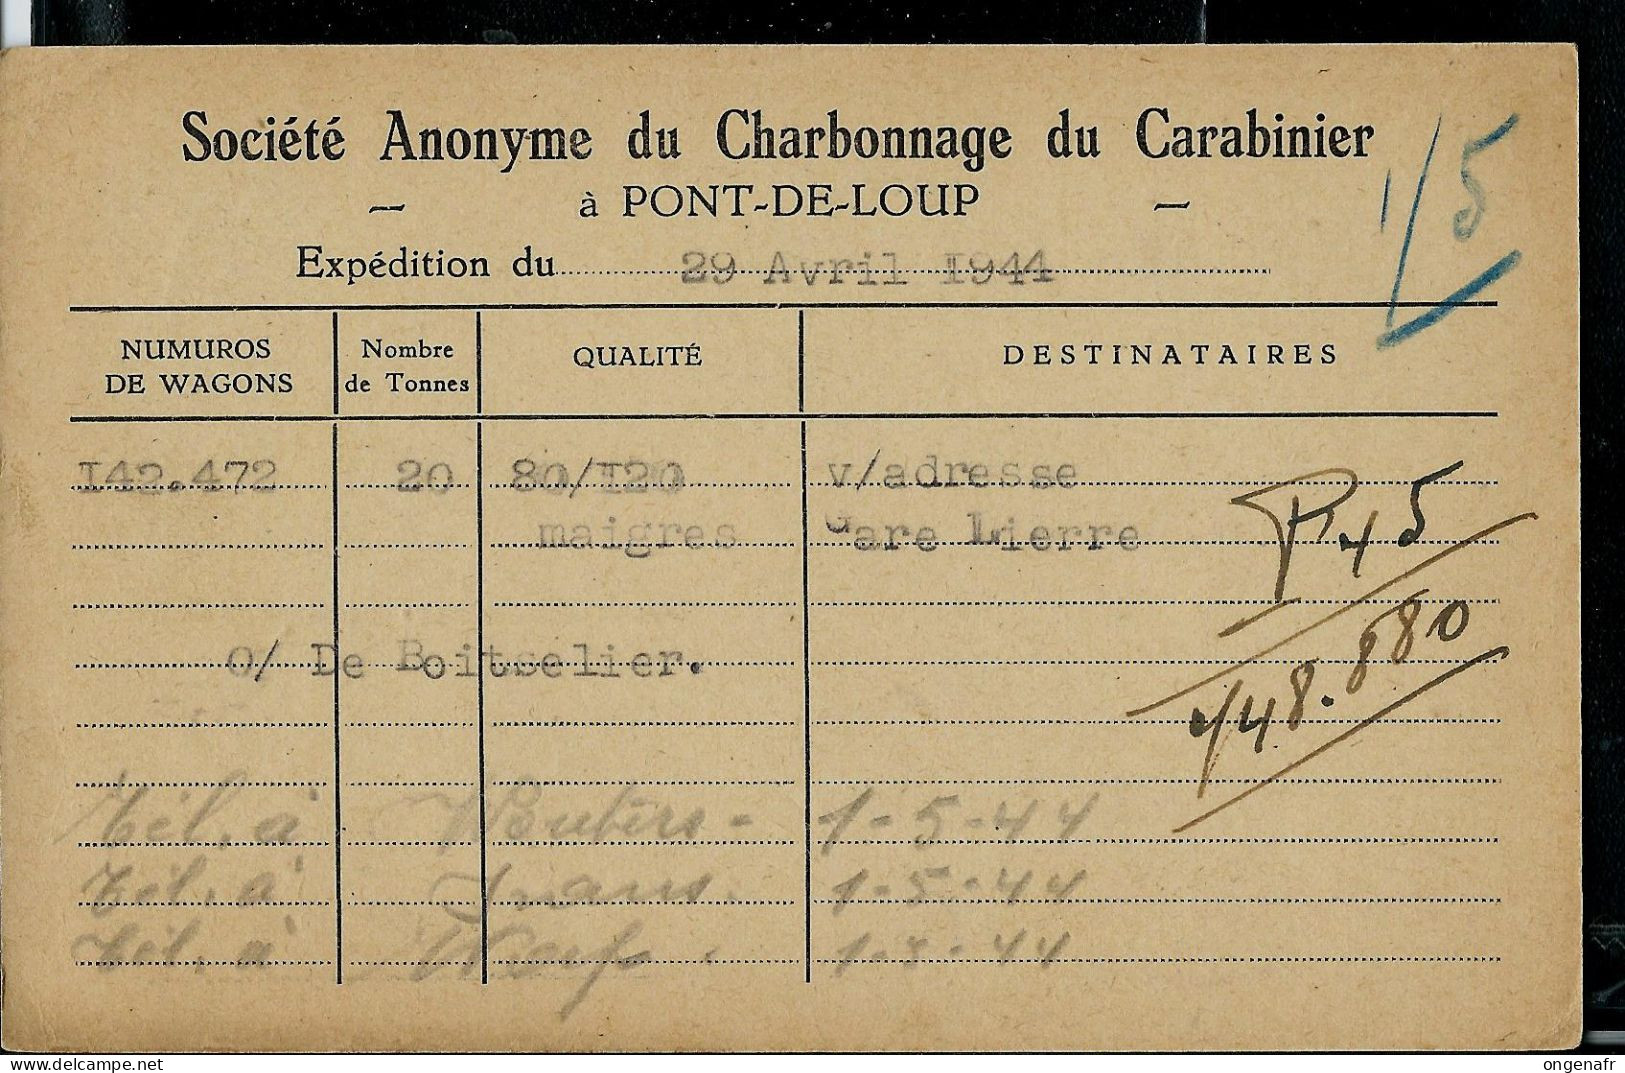 Société Anonyme du Charbonnage du Carabinier
— à PONT-DE-LOUP —
Expédition du 29 Avril I944
1/5
NUMUROS DE WAGONS
Nombre de Tonnes
QUALITÉ
DESTINATAIRES
I42.472 20 80/I20 v/adresse
maigres Gare Lierre
P 45
o/ De Boitselier.
448.880
Tél. à Wouters - 1-5-44
Tél. à 1-5-44
Tél. à 1-5-44
www.delcampe.net
ongenafr